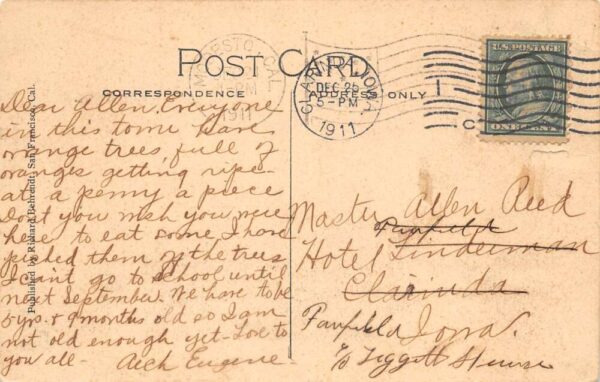 POST CARD
CORRESPONDENCE
ADDRESS ONLY
MODESTO, CAL.
1911
CLARINDA, IOWA.
DEC 26
5-PM
1911
U.S. POSTAGE
ONE CENT
Published by Richard Behrendt, San Francisco, Cal.
Dear Allen. Everyone
in this town have
orange trees, full of
oranges getting ripe-
at a penny a piece
dont you wish you were
here to eat some I have
picked them off the trees
I can't go to school until
next September. We have to be
5 yrs. & 9 months old so I am
not old enough yet- Love to
you all- Eugene-
Master Allen Reed
Panfield
Hotel Linderman
Clarinda
Iowa.